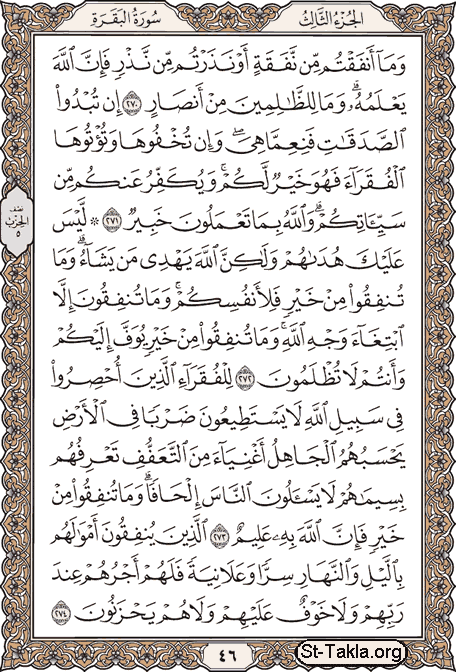 الجُزْءُ الثَّالِثُ
سُورَةُ البَقَرَةِ
وَمَآ أَنفَقْتُم مِّن نَّفَقَةٍ أَوْ نَذَرْتُم مِّن نَّذْرٍ فَإِنَّ ٱللَّهَ
يَعْلَمُهُۥۗ وَمَا لِلظَّٰلِمِينَ مِنْ أَنصَارٍ ٢٧٠ إِن تُبْدُوا۟
ٱلصَّدَقَٰتِ فَنِعِمَّا هِىَۖ وَإِن تُخْفُوهَا وَتُؤْتُوهَا
ٱلْفُقَرَآءَ فَهُوَ خَيْرٌ لَّكُمْۚ وَيُكَفِّرُ عَنكُم مِّن
سَيِّـَٔاتِكُمْۗ وَٱللَّهُ بِمَا تَعْمَلُونَ خَبِيرٌ ٢٧١ ۞ لَّيْسَ
عَلَيْكَ هُدَىٰهُمْ وَلَٰكِنَّ ٱللَّهَ يَهْدِى مَن يَشَآءُۗ وَمَا
تُنفِقُوا۟ مِنْ خَيْرٍ فَلِأَنفُسِكُمْۚ وَمَا تُنفِقُونَ إِلَّا
ٱبْتِغَآءَ وَجْهِ ٱللَّهِۚ وَمَا تُنفِقُوا۟ مِنْ خَيْرٍ يُوَفَّ إِلَيْكُمْ
وَأَنتُمْ لَا تُظْلَمُونَ ٢٧٢ لِلْفُقَرَآءِ ٱلَّذِينَ أُحْصِرُوا۟
فِى سَبِيلِ ٱللَّهِ لَا يَسْتَطِيعُونَ ضَرْبًا فِى ٱلْأَرْضِ
يَحْسَبُهُمُ ٱلْجَاهِلُ أَغْنِيَآءَ مِنَ ٱلتَّعَفُّفِ تَعْرِفُهُم
بِسِيمَٰهُمْ لَا يَسْـَٔلُونَ ٱلنَّاسَ إِلْحَافًاۗ وَمَا تُنفِقُوا۟ مِنْ
خَيْرٍ فَإِنَّ ٱللَّهَ بِهِۦ عَلِيمٌ ٢٧٣ ٱلَّذِينَ يُنفِقُونَ أَمْوَٰلَهُم
بِٱلَّيْلِ وَٱلنَّهَارِ سِرًّا وَعَلَانِيَةً فَلَهُمْ أَجْرُهُمْ عِندَ
رَبِّهِمْ وَلَا خَوْفٌ عَلَيْهِمْ وَلَا هُمْ يَحْزَنُونَ ٢٧٤
نصف
الحزب
٥
٤٦
St-Takla.org